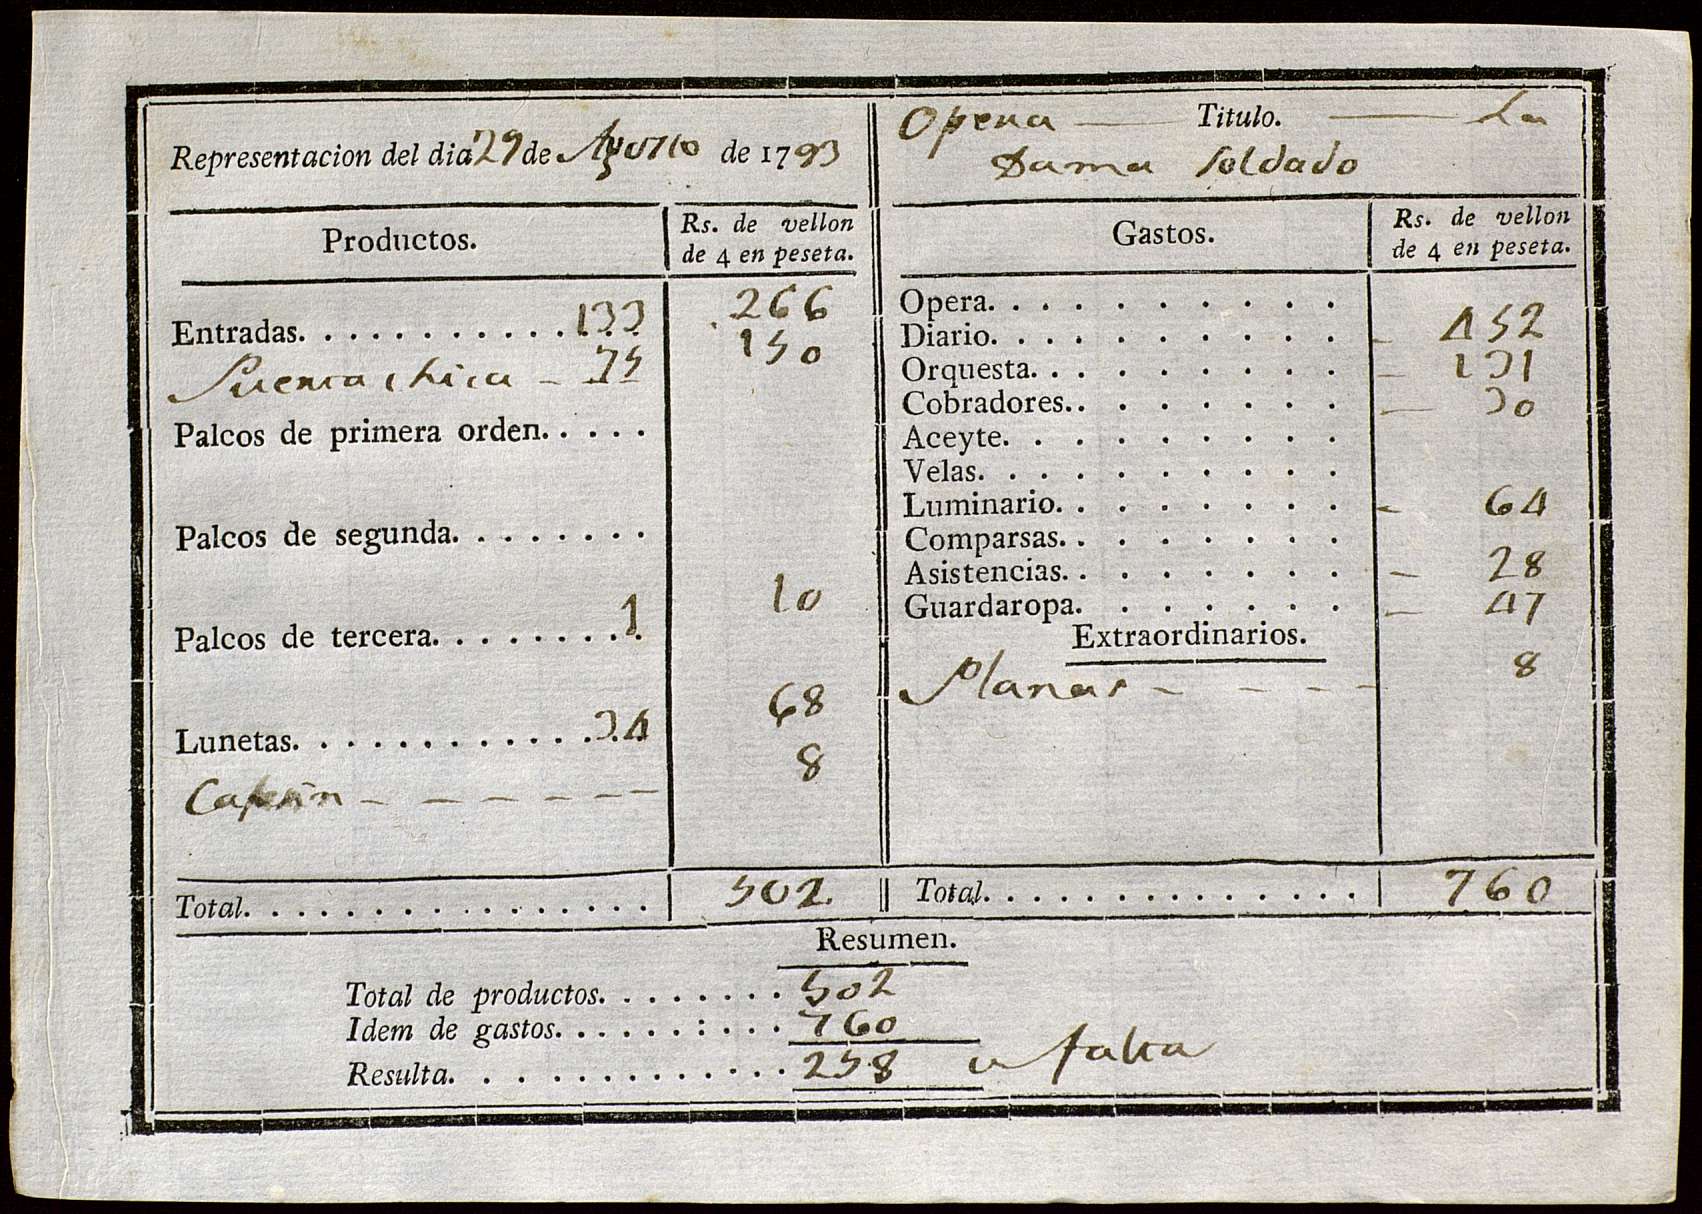 Representacion del dia 29 de Agosto de 1793
Opera — Titulo. — La
Dama Soldado
Productos. Rs. de vellon de 4 en peseta.
Entradas. . . . . . . . . . . . 133 266
Puerta chica - 75 150
Palcos de primera orden. . . . .
Palcos de segunda. . . . . . . .
Palcos de tercera. . . . . . . . . 1 10
Lunetas. . . . . . . . . . . . . 34 68
8
Total. . . . . . . . . . . . . . . . 502
Gastos. Rs. de vellon de 4 en peseta.
Opera. . . . . . . . . .
Diario. . . . . . . . . . - 452
Orquesta. . . . . . . . . - 131
Cobradores. . . . . . . . - 30
Aceyte. . . . . . . . . .
Velas. . . . . . . . . . .
Luminario. . . . . . . . - 64
Comparsas. . . . . . . .
Asistencias. . . . . . . . - 28
Guardaropa. . . . . . . - 47
Extraordinarios.
Planas - - - - 8
Total. . . . . . . . . . . . . . . 760
Resumen.
Total de productos. . . . . . . . 502
Idem de gastos. . . . . . : . . . 760
Resulta. . . . . . . . . . . . . 258 falta